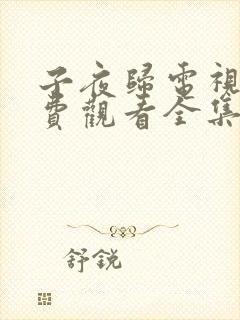 子夜歸電視
費觀看全集
舒銳